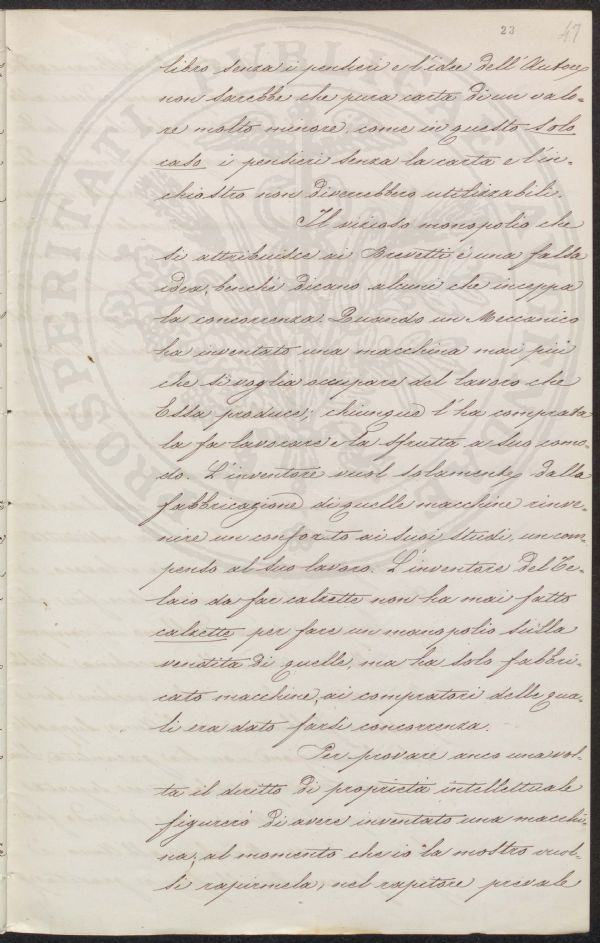 23 47
PROSPERITATI PUBLICAE AUGENDAE
libro senza i pensieri e l'idee dell'Autore
non sarebbe che pura carta di un valo-
re molto minore, come in questo solo
caso i pensieri senza la carta e l'in-
chiostro non diverebbero utilizzabili.
Il vizioso monopolio che
si attribuisce ai Brevetti é una falsa
idea, benchè dicano alcuni che inceppa
la concorrenza. Quando un Meccanico
ha inventato una macchina mai più
che si voglia occupare del lavoro che
Essa produce; chiunque l'ha comprata
la fa lavorare e la sfrutta a suo como-
do. L'inventore vuol solamente dalla
fabbricazione di quelle macchine rinve-
nire un conforto ai suoi studi, un com-
penso al suo lavoro. L'inventore del Te-
laio da far calzette non ha mai fatto
calzette per fare un monopolio sulla
vendita di quelle, ma ha solo fabbri-
cato macchine, ai compratori delle qua-
li era dato farsi concorrenza.
Per provare anco una vol-
ta il diritto di proprietà intellettuale
figurerò di avere inventato una macchi-
na; al momento che io la mostro vuol-
si rapirmela, nel rapitore prevale